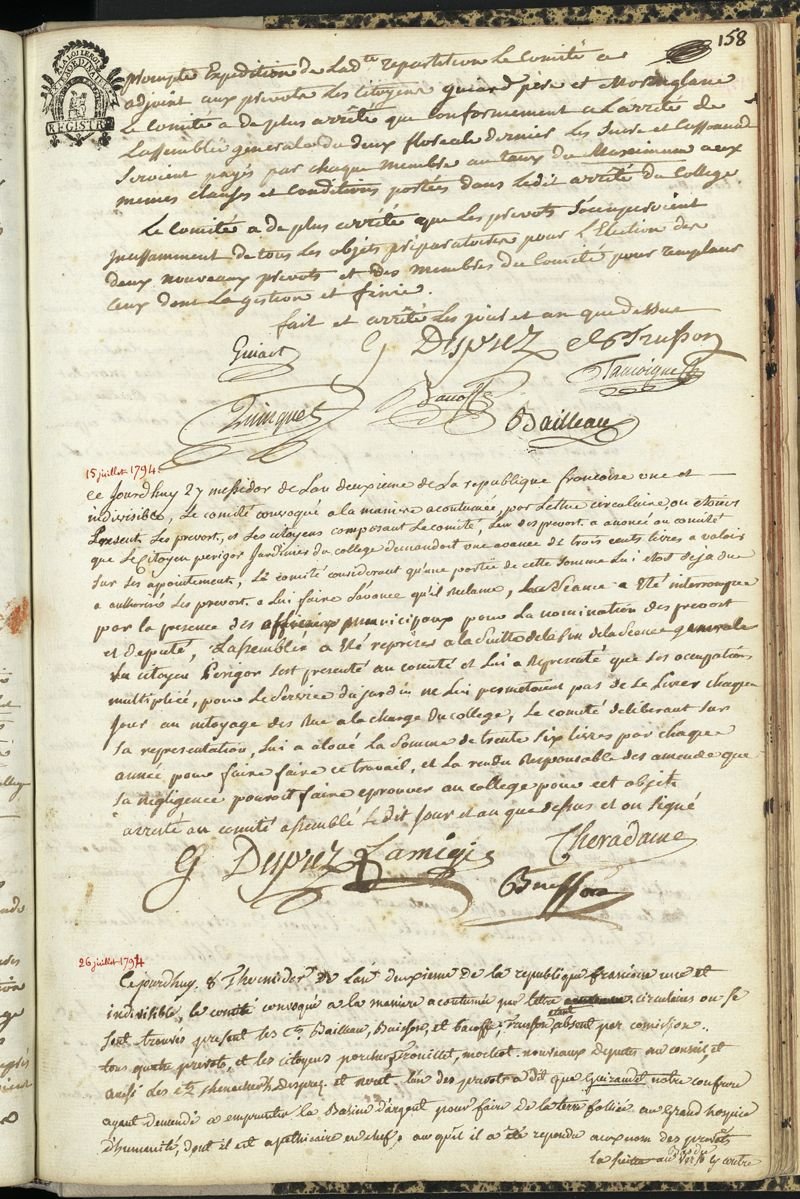 158
A LA LOI LE ROI
REGISTR
prompte Expedition de Lad.te repartition Le Comité a
adjoint aux prevots Les Citoyens guiard père et Moringlane
Le Comité a de plus arrêté que conformement a Larrêté de
Lassemblée generale du deux floreale dernier Les Sucre et Cassonad
Seroient payés par chaque membre au taux du Maximum aux
memes clauses et Conditions portées dans Ledit arrêté du College
Le Comité a de plus arrêté que Les prevots S'occuperoient
Incessamment de tous Les objets préparatoires pour l'Election des
deux nouveaux prevots et des membres du Comité pour remplacer
Ceux dont La gestion est finie.
fait et arrêté Les jour et an que dessus
Guiart G Despréz Trusson
Tancoigne
Quinquet Bacoffe
Bailleau
15 juillet 1794
Ce Jourdhuy 27 messidor de Lan deuxieme de La republique francoise une et
indivisible, Le comité convoqué a la maniere acoutumée, par Lettre circulaire, ou etoient
Present Les prevort, et Les citoyens composant Le comité, Lun des prevort a anoncé au comité
que Le citoyen perigor Jardinier du college demandoit une avance de trois cents livres a valoir
sur Ses apointement, Le comité considerant qu'une portée de cette Somme Lui etoit deja due
a authorisé Les prevort a Lui faire Lavance qu'il Reclame, La Séance a Eté interrompue
par la presence des officiers municipaux pour La nomination des prevort
et deputé, Lassemblée a Eté reprise a La Suitte de la fin de la Séance generale
Le citoyen Perigor S'est presenté au comité et Lui a Représenté que Ses occupations
multiplicé, pour Le Service du jardin ne Lui permetoient pas de Se Livrer chaque
Jour au nitoyage des Rue a la charge du college, Le comité deliberant Sur
Sa representation, Lui a aloué La Somme de trente Six livres par chaque
année pour faire faire ce travail, et La rendu Responsable des amende que
Sa negligence pouroit faire eprouver au college pour cet objet
arreté au comité assemblé Le dit Jour et an que dessus et on Signé
G Despréz Lamigis Cheradame
Bouisson
26 juillet 1794
Cejourdhuy 8 Thermidor De Lan deuxieme de la republique francoise une et
indivisible, le comité convoqué a la maniere acoutumée par lettre circulaires ou se
sont trouvés present les C.ns Bailleau, Buisson, et bacoffe, Trusson etant absent par comission
tous quatre prevots, et les citoyens porcher Trouillet, morliot nouveaux députés au conseil, et
ansi Les C.ns Cheradame, Desprez et Noret. L'un des prevots a dit que Guizandet notre confrere
ayant demandé a emprunter la Bassine d'argent pour faire de la terre foliée au Grand hospice
d'humanité, dont il est apothicaire en chef, a quoi il a eté repondu au nom des prevots
La suitte au verso cy contre